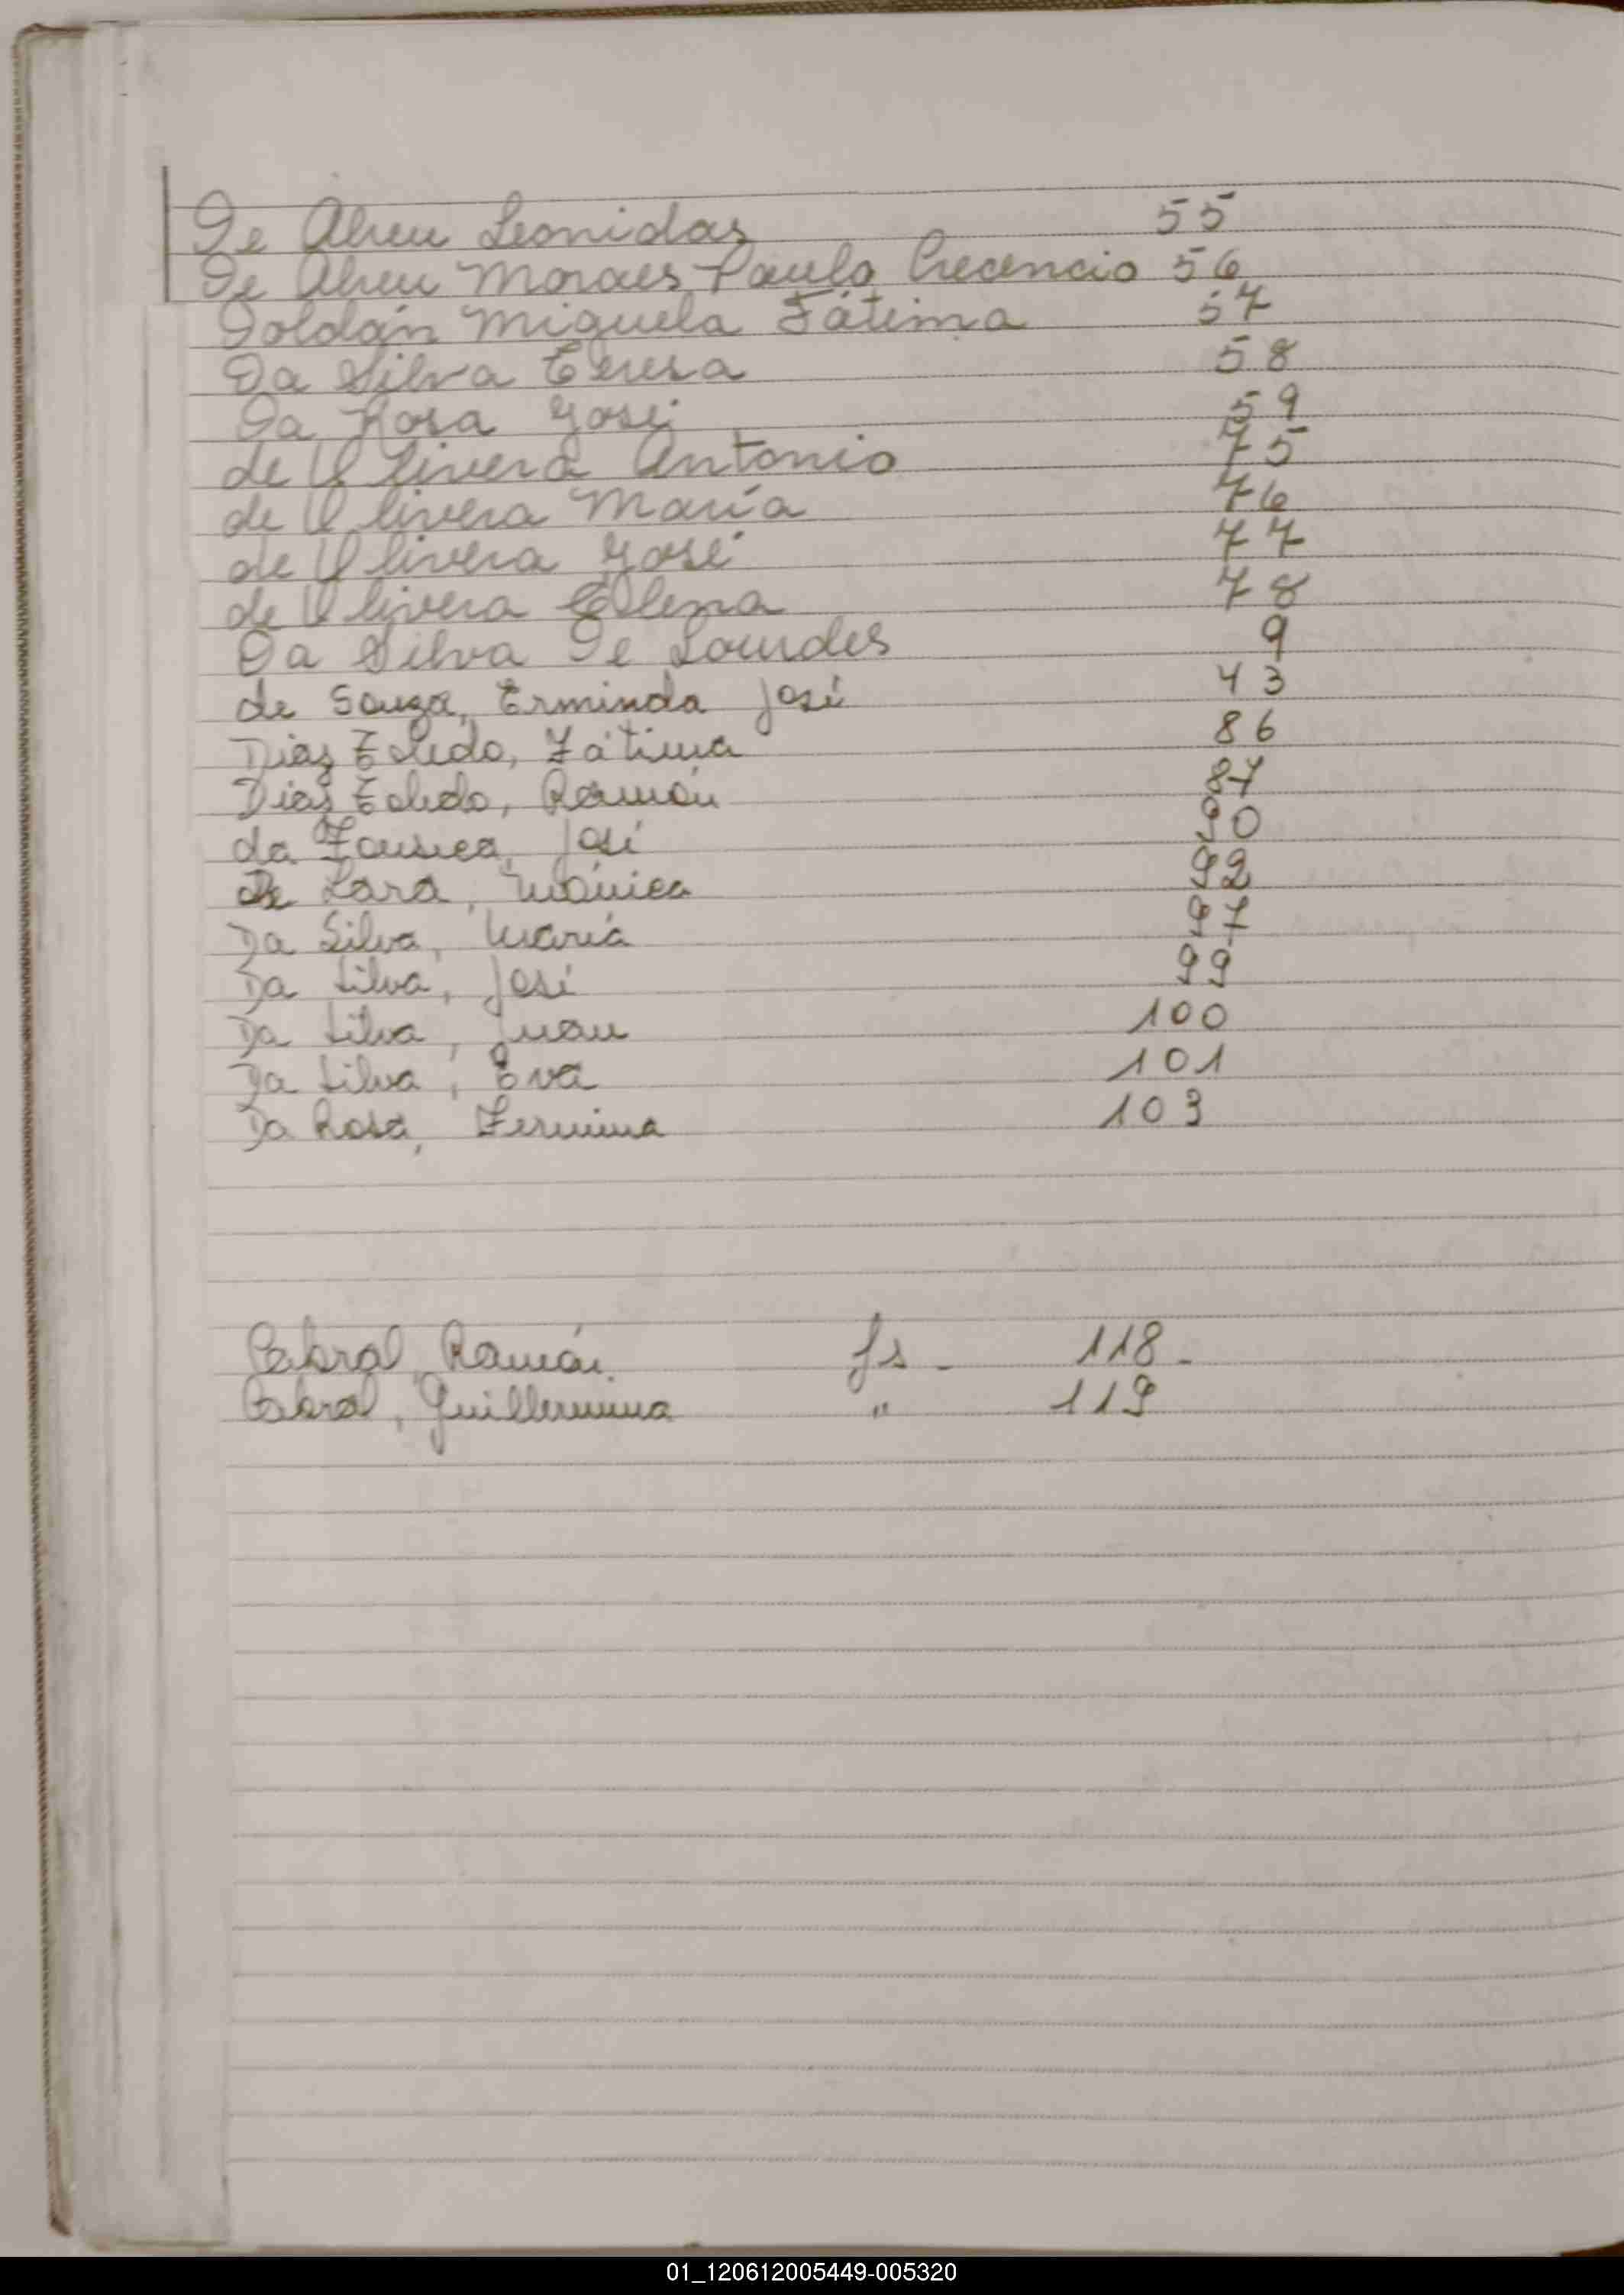 De Abreu Leonidas 55
De Abreu Moraes Paulo Crecencio 56
Doldán Miguela Fátima 57
Da Silva Teresa 58
Da Rosa José 59
de Olivera Antonio 75
de Olivera María 76
de Olivera José 77
de Olivera Elena 78
Da Silva De Lourdes 9
de Souza, Erminda José 43
Dias Toledo, Fátima 86
Dias Toledo, Ramón 87
da Fonseca, José 90
de Lara, Mónica 92
Da Silva, María 97
Da Silva, José 99
Da Silva, Juan 100
Da Silva, Eva 101
Da Rosa, Fermina 103
Cabral, Ramón. fs - 118 -
Cabral, Guillermina " 119
01_120612005449-005320